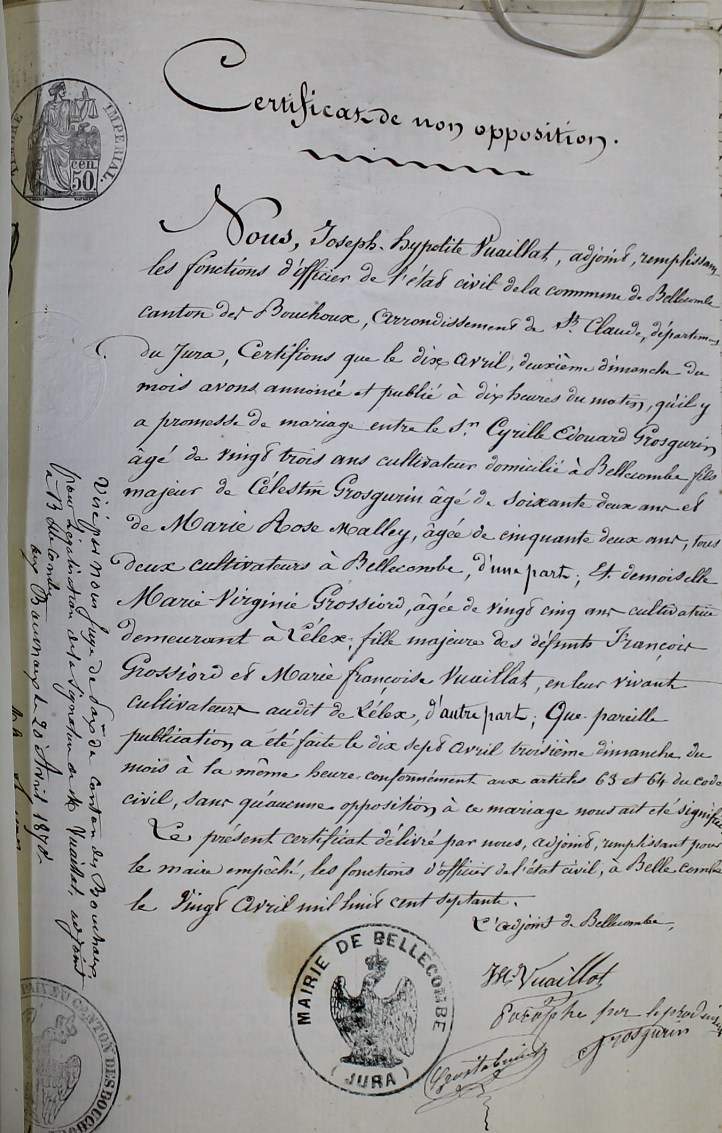 TIMBRE IMPERIAL.
50 cen
Certificat de non opposition.
Nous, Joseph-hypolite Vuaillat, adjoint, remplissant
les fonctions d'officier de l'état civil de la commune de Bellecombe
canton des Bouchoux, Arrondissement de St. Claude, département
du Jura, Certifions que le dix avril, deuxième dimanche du
mois avons annoncé et publié à dix heures du matin, qu'il y
a promesse de mariage entre le Sr. Cyrille Edouard Grosgurin
âgé de vingt trois ans cultivateur domicilié à Bellecombe fils
majeur de Célestin Grosgurin âgé de soixante deux ans et
de Marie Rose Malley, âgée de cinquante deux ans, tous
deux cultivateurs à Bellecombe, d'une part; Et demoiselle
Marie Virginie Grossiord, âgée de vingt cinq ans cultivatrice
demeurant à Lélex, fille majeure des défunts François
Grossiord et Marie françoise Vuaillat, en leur vivant
cultivateurs audit de Lélex, d'autre part; Que pareille
publication a été faite le dix sept avril troisième dimanche du
mois à la même heure conformément aux articles 63 et 64 du code
civil, sans qu'aucune opposition à ce mariage nous ait été signifiée
Le présent certificat délivré par nous, adjoint, remplissant pour
le maire empêché, les fonctions d'officier de l'état civil, à Bellecombe
le vingt avril mil huit cent septante.
L'adjoint de Bellecombe,
Vuaillat
Grosgurin
MAIRIE DE BELLECOMBE
(JURA)
Visé par nous Juge de paix du canton des Bouchoux
pour légalisation de la signature de Mr Vuaillat, adjoint
à Bellecombe
aux Bouchoux le 20 avril 1870
PAIX DU CANTON DES BOUCHOUX